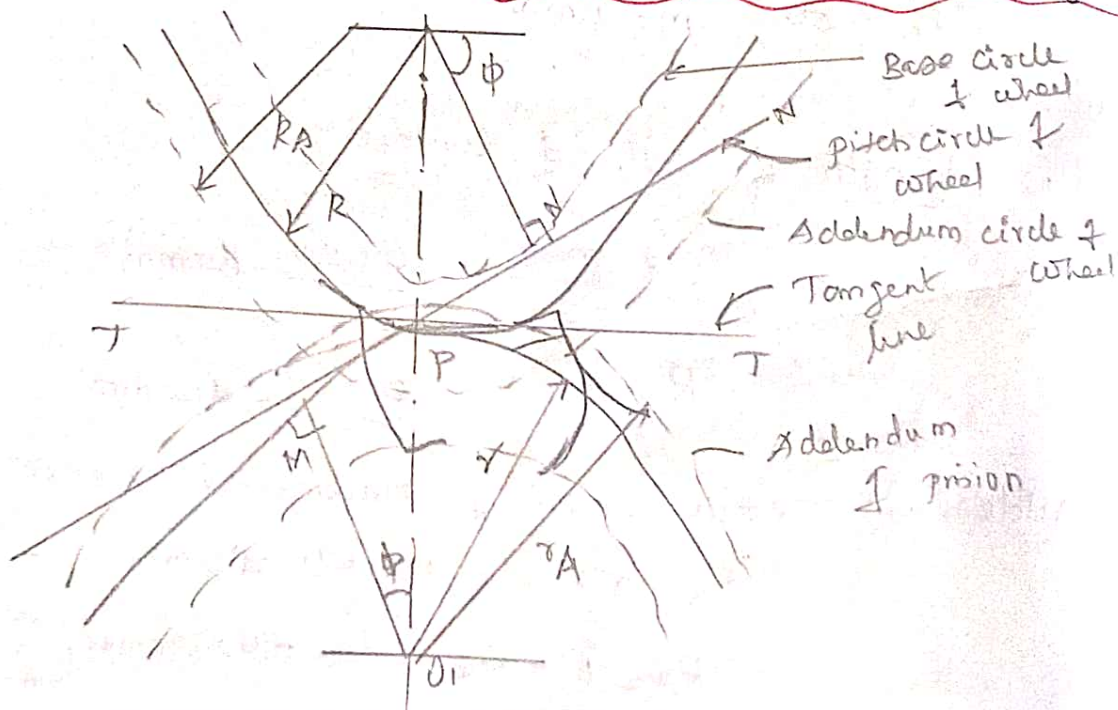 ϕ
RA
R
N
N
Base circle
of wheel
pitch circle of
wheel
Addendum circle of
wheel
Tangent
line
T
P
T
M
r
Addendum
of pinion
ϕ
rA
O1